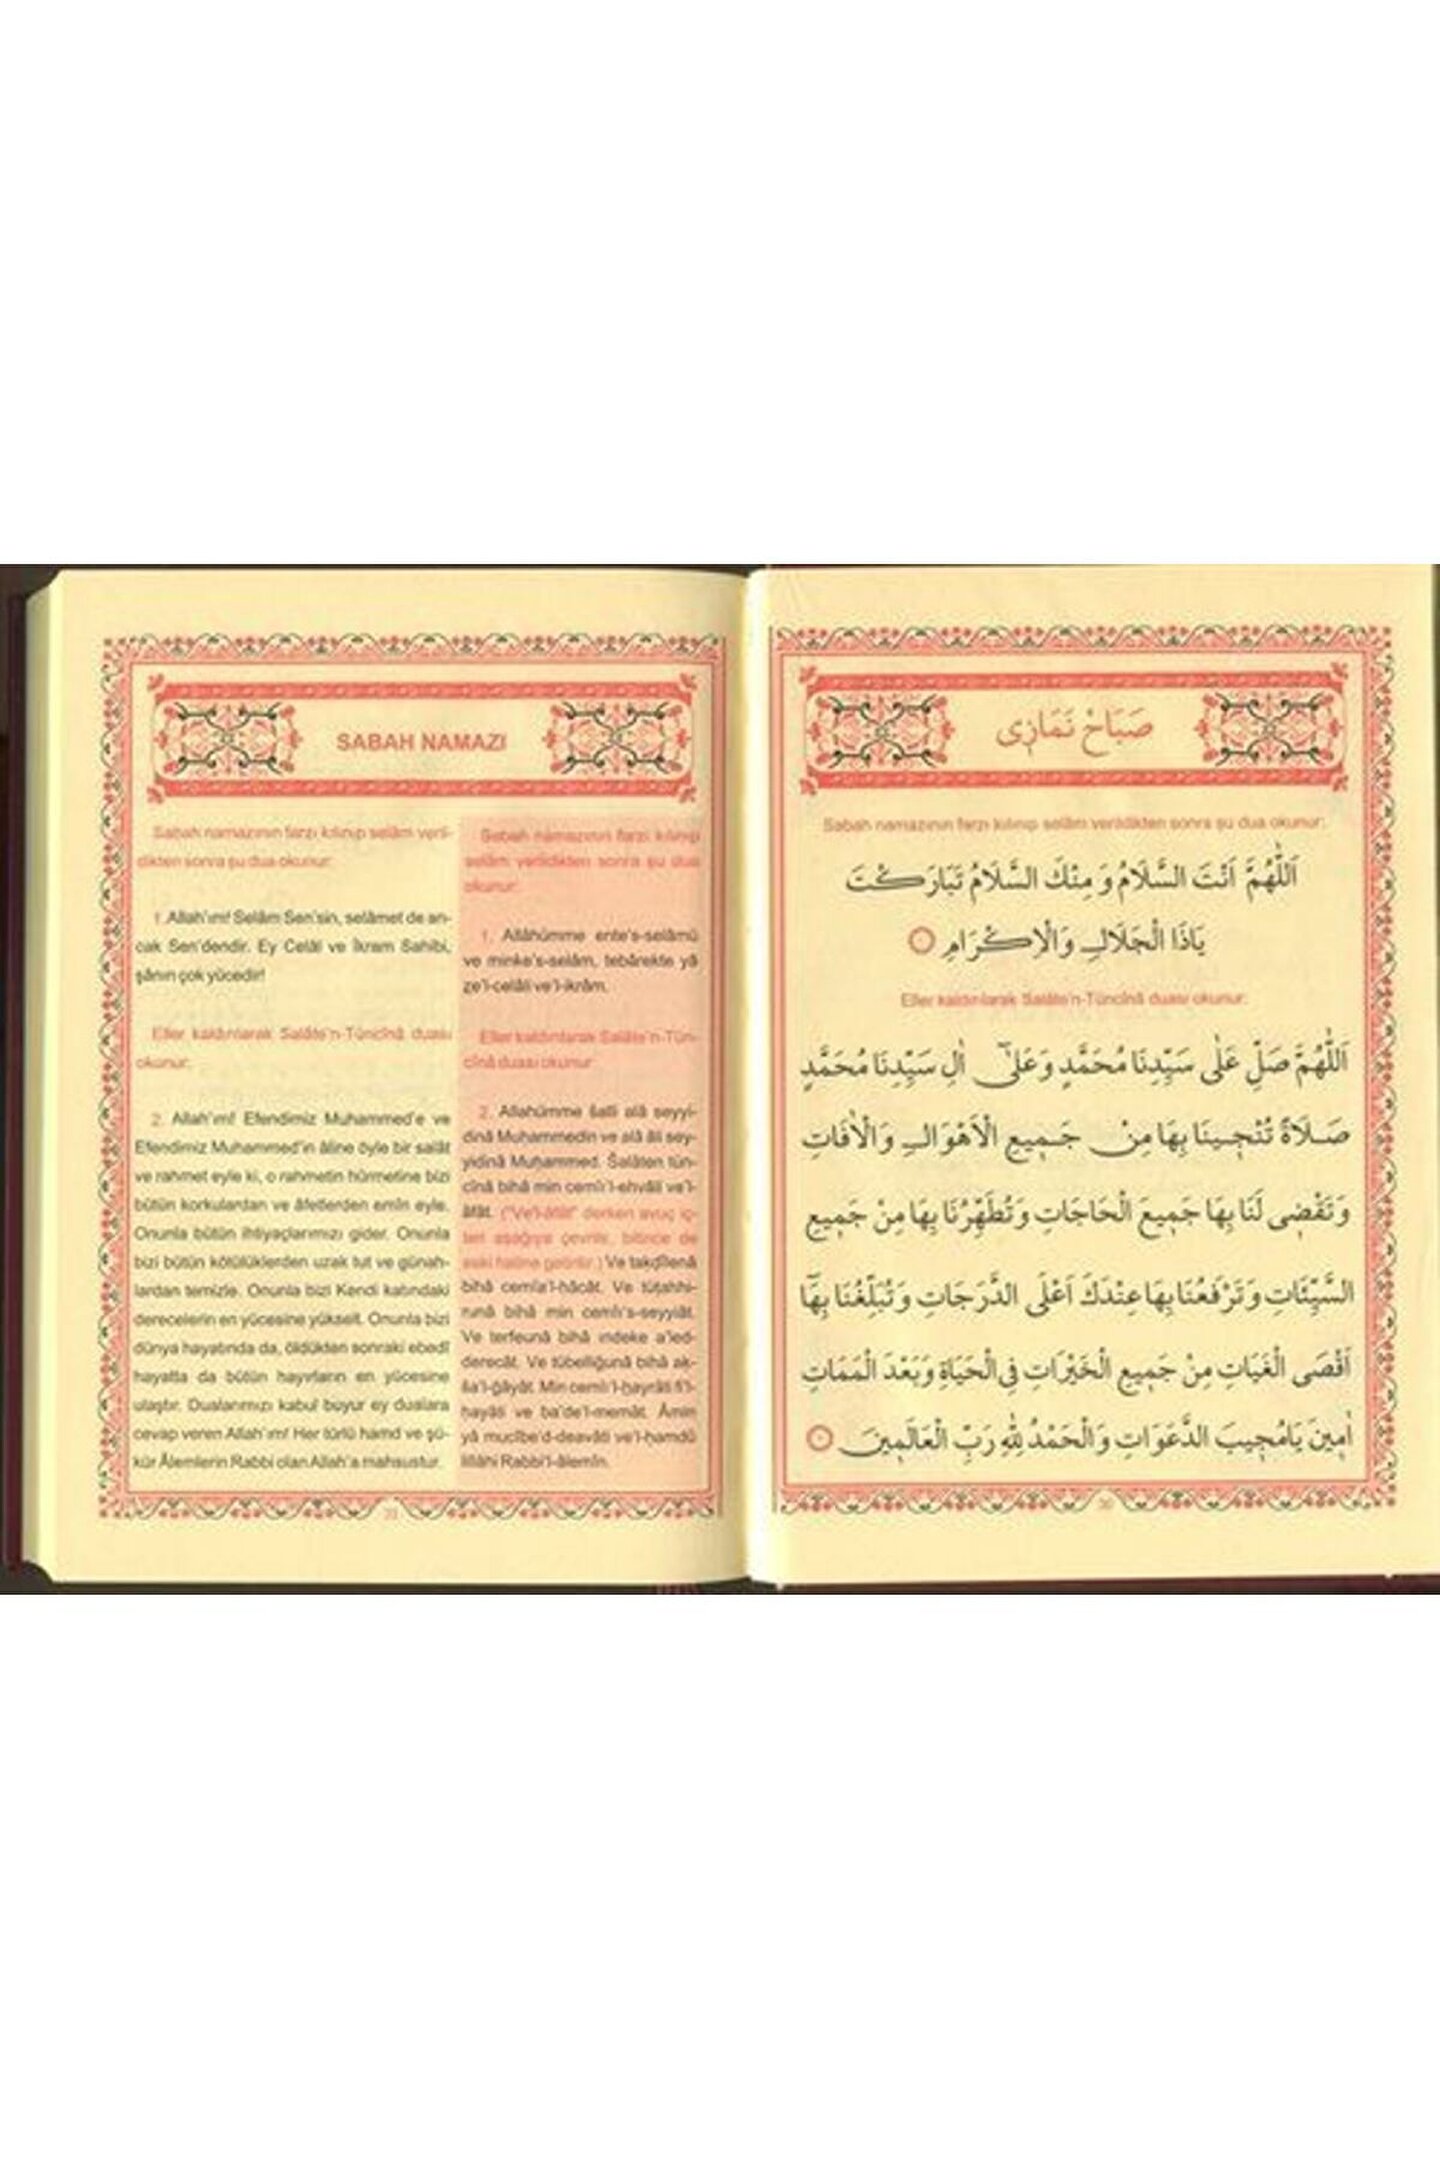 SABAH NAMAZI
Sabah namazının farzı kılınıp selâm veril-
dikten sonra şu dua okunur:
1. Allah'ım! Selâm Sen'sin, selâmet de an-
cak Sen'dendir. Ey Celâl ve İkram Sahibi,
şânın çok yücedir!
Eller kaldırılarak Salâte'n-Tüncînâ duası
okunur:
2. Allah'ım! Efendimiz Muhammed'e ve
Efendimiz Muhammed'in âline öyle bir salât
ve rahmet eyle ki, o rahmetin hürmetine bizi
bütün korkulardan ve âfetlerden emîn eyle.
Onunla bütün ihtiyaçlarımızı gider. Onunla
bizi bütün kötülüklerden uzak tut ve günah-
lardan temizle. Onunla bizi Kendi katındaki
derecelerin en yücesine yükselt. Onunla bizi
dünya hayatında da, öldükten sonraki ebedî
hayatta da bütün hayırların en yücesine
ulaştır. Dualarımızı kabul buyur ey dualara
cevap veren Allah'ım! Her türlü hamd ve şü-
kür Âlemlerin Rabbi olan Allah'a mahsustur.
Sabah namazının farzı kılınıp
selâm verildikten sonra şu dua
okunur:
1. Allâhümme ente's-selâmü
ve minke's-selâm, tebârekte yâ
ze'l-celâli ve'l-ikrâm.
Eller kaldırılarak Salâte'n-Tün-
cînâ duası okunur:
2. Allahümme šalli alâ seyyi-
dinâ Muḥammedin ve alâ âli sey-
yidinâ Muḥammed. Šalâten tün-
cînâ bihâ min cemîi'l-ehvâli ve'l-
âfât. ("Ve'l-âfât" derken avuç iç-
leri aşağıya çevrilir, bitince de
eski haline getirilir.) Ve takḍîlenâ
bihâ cemîa'l-hâcât. Ve tüṭahhi-
runâ bihâ min cemîi's-seyyiât.
Ve terfeunâ bihâ indeke a'led-
derecât. Ve tübelliğunâ bihâ ak-
ša'l-ğâyât. Min cemîi'l-ḫayrâti fi'l-
ḥayâti ve ba'de'l-memât. Âmin
yâ mucîbe'd-deavâti ve'l-ḥamdü
lillâhi Rabbi'l-âlemîn.
صَبَاحْ نَمَازِى
Sabah namazının farzı kılınıp selâm verildikten sonra şu dua okunur:
اَللّٰهُمَّ اَنْتَ السَّلَامُ وَ مِنْكَ السَّلَامُ تَبَارَكْتَ
يَاذَا الْجَلَالِ وَالْاِكْرَامِ
Eller kaldırılarak Salâte'n-Tüncînâ duası okunur:
اَللّٰهُمَّ صَلِّ عَلٰى سَيِّدِنَا مُحَمَّدٍ وَعَلٰٓى اٰلِ سَيِّدِنَا مُحَمَّدٍ
صَلَاةً تُنْجِينَا بِهَا مِنْ جَمِيعِ الْاَهْوَالِ وَالْاٰفَاتِ
وَتَقْضِى لَنَا بِهَا جَمِيعَ الْحَاجَاتِ وَتُطَهِّرُنَا بِهَا مِنْ جَمِيعِ
السَّيِّئَاتِ وَتَرْفَعُنَا بِهَا عِنْدَكَ اَعْلَى الدَّرَجَاتِ وَتُبَلِّغُنَا بِهَٓا
اَقْصَى الْغَيَاتِ مِنْ جَمِيعِ الْخَيْرَاتِ فِى الْحَيَاةِ وَبَعْدَ الْمَمَاتِ
اٰمِينَ يَامُجِيبَ الدَّعَوَاتِ وَالْحَمْدُ لِلّٰهِ رَبِّ الْعَالَمِينَ